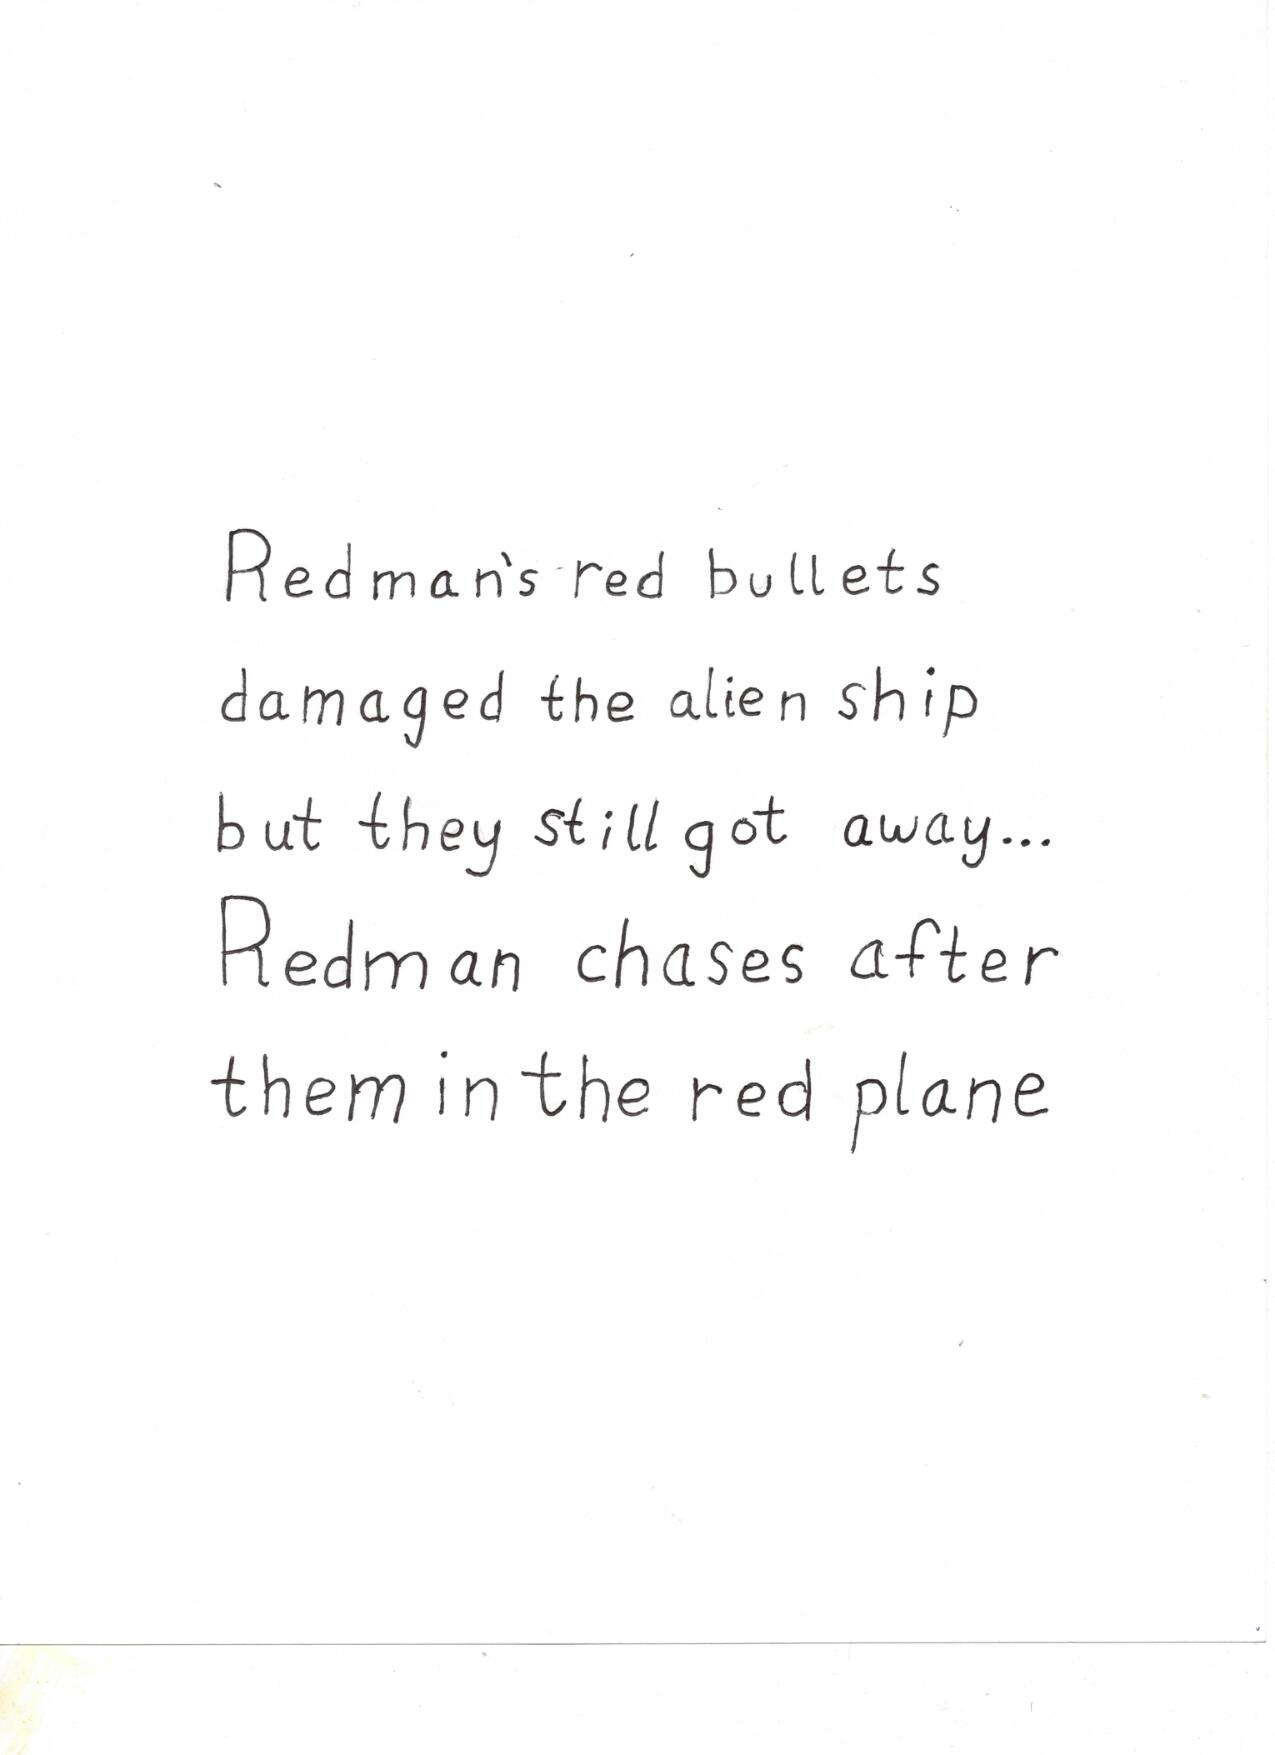 Redman's red bullets
damaged the alien ship
but they still got away...
Redman chases after
them in the red plane